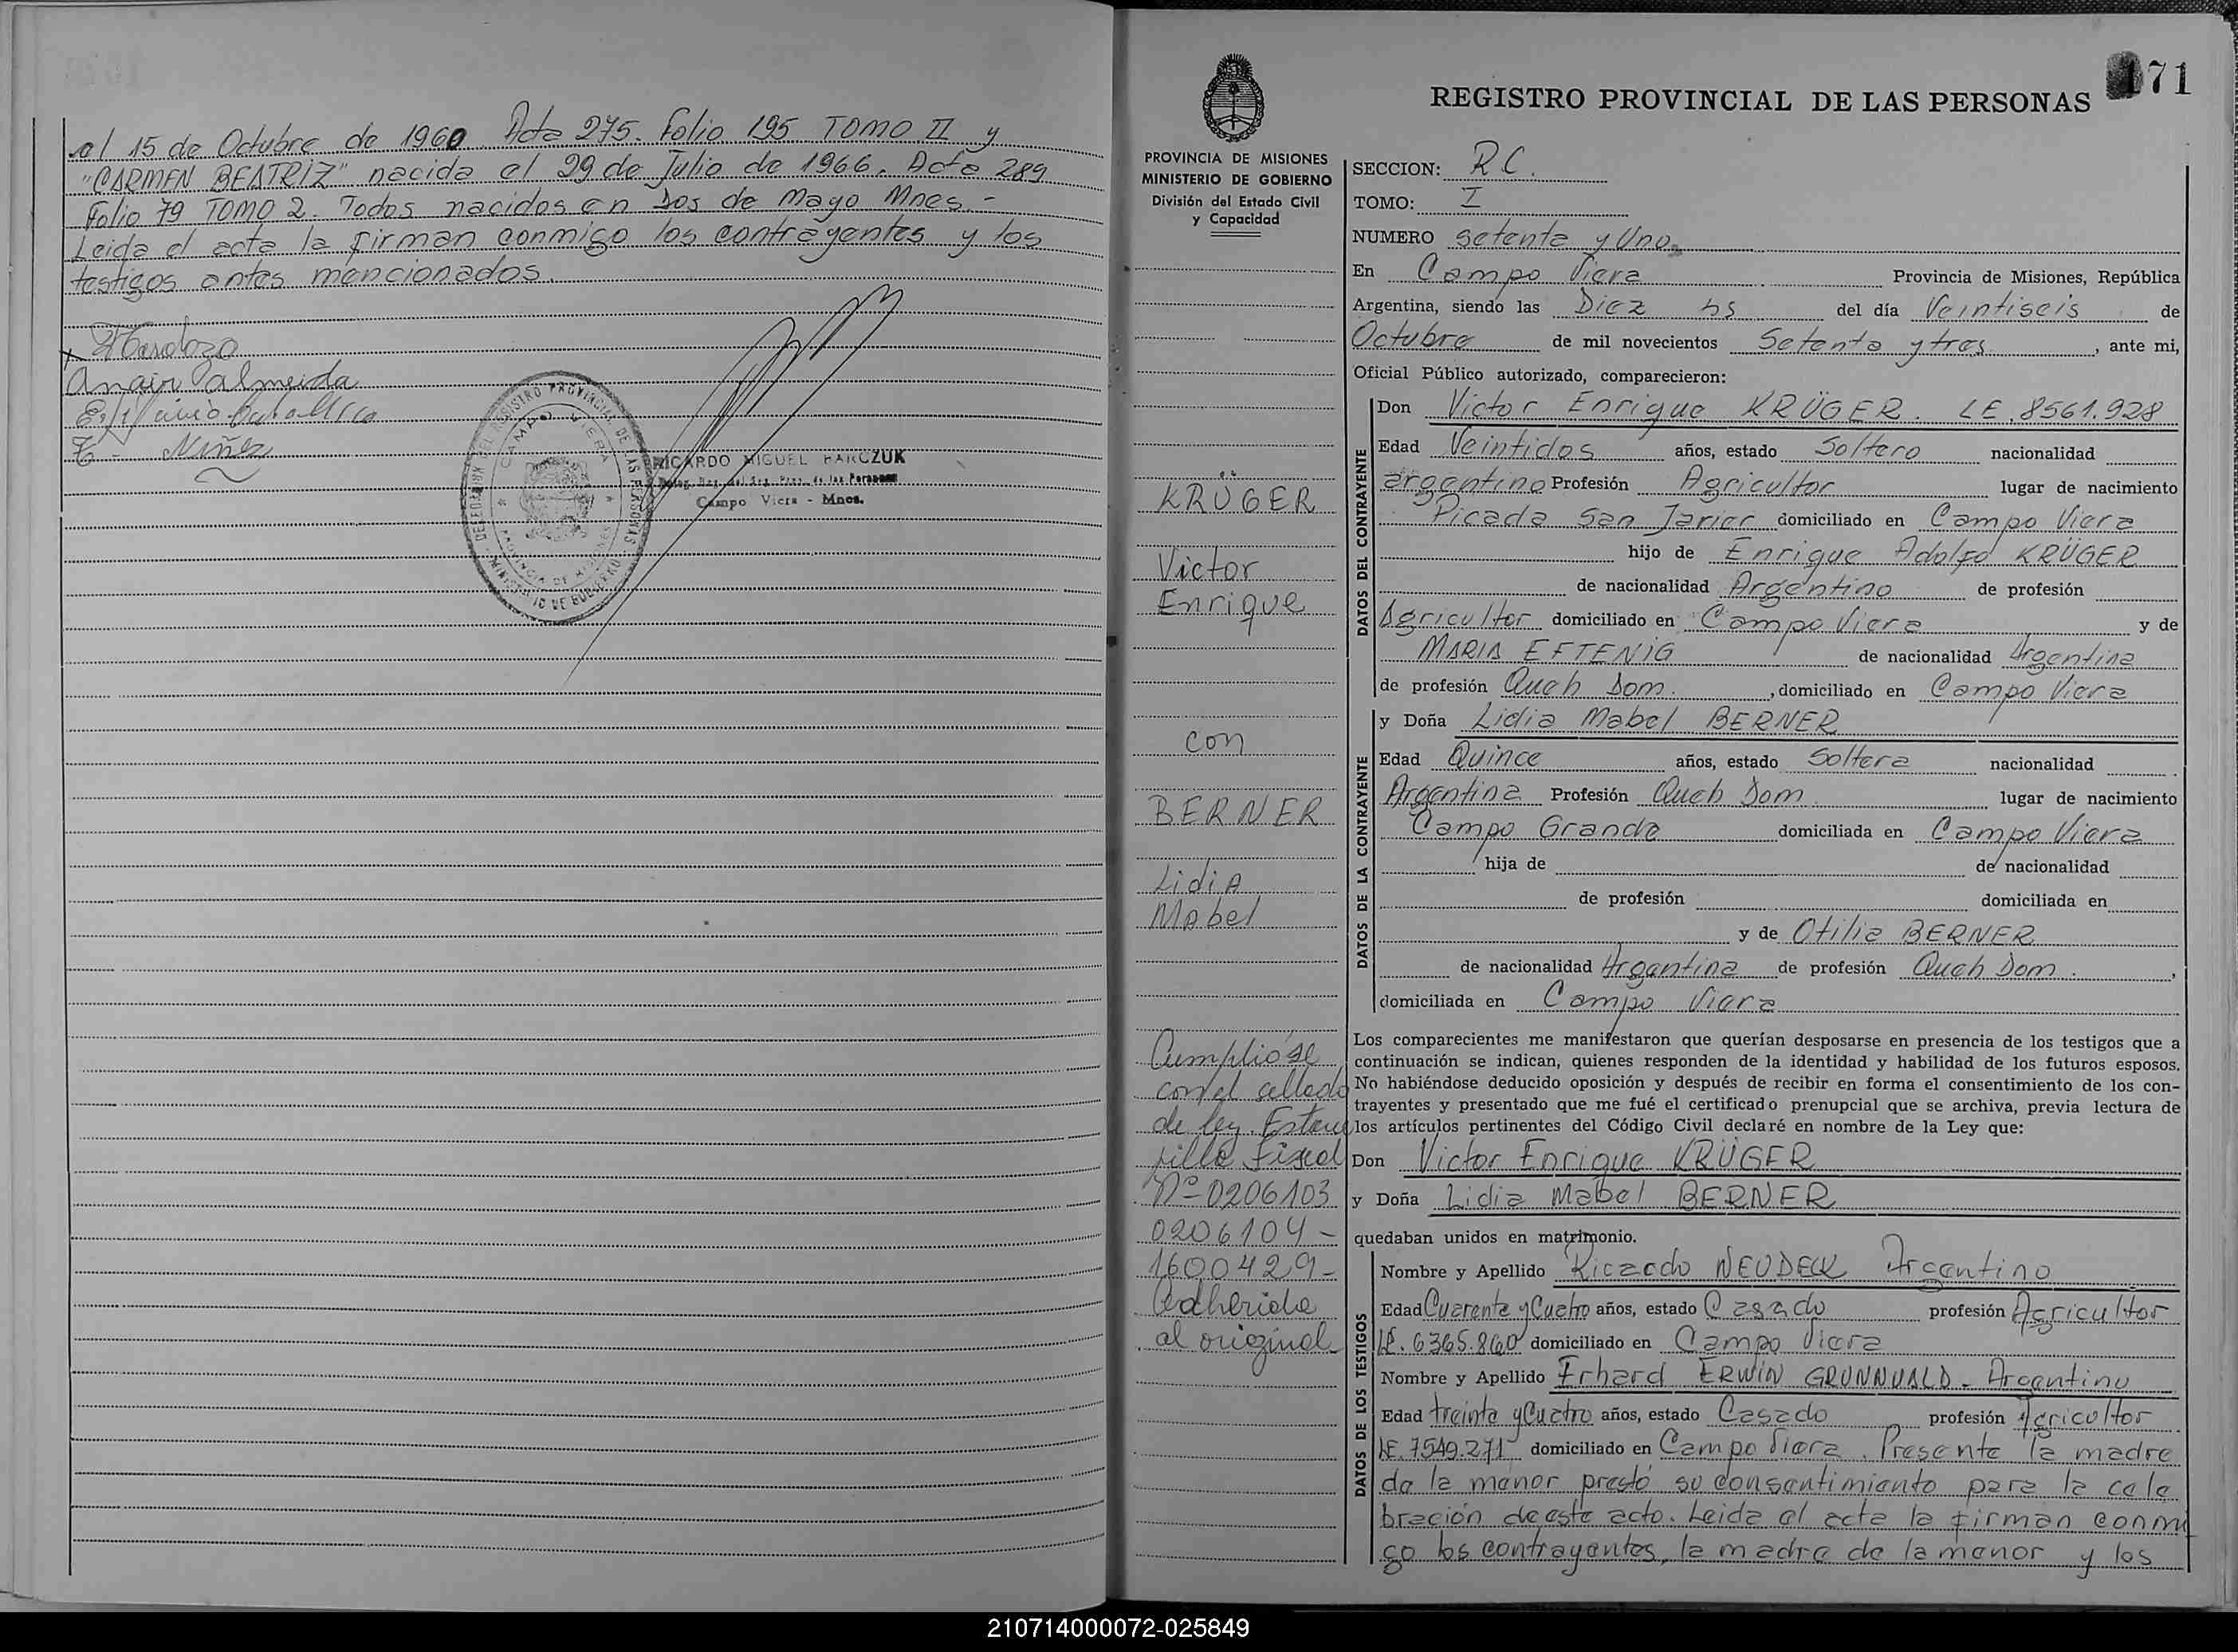 el 15 de Octubre de 1960. Acta 275. Folio 195 TOMO II y
"CARMEN BEATRIZ" nacida el 29 de Julio de 1966. Acta 289
Folio 79 TOMO 2. Todos nacidos en Dos de Mayo Mnes.-
Leida el acta la firman conmigo los contrayentes y los
testigos antes mencionados.
Anair Almeida
Nuñez
DELEGACION DEL REGISTRO PROVINCIAL DE LAS PERSONAS
CAMPO VIERA
PROVINCIA DE MISIONES
MINISTERIO DE GOBIERNO
RICARDO MIGUEL
Campo Viera - Mnes.
171
REGISTRO PROVINCIAL DE LAS PERSONAS
PROVINCIA DE MISIONES
MINISTERIO DE GOBIERNO
División del Estado Civil
y Capacidad
KRÜGER
Victor
Enrique
con
BERNER
Lidia
Mabel
Cumplióse
con el sellado
de ley. Estam
pilla Fiscal
Nº-0206103
0206104-
1600429-
Adherida
al original
SECCION: R.C.
TOMO: I
NUMERO setenta y Uno
En Campo Viera Provincia de Misiones, República
Argentina, siendo las Diez hs del día Veintiseis de
Octubre de mil novecientos Setenta y tres, ante mi,
Oficial Público autorizado, comparecieron:
DATOS DEL CONTRAYENTE
Don Victor Enrique KRÜGER. LE.8561.928
Edad Veintidos años, estado Soltero nacionalidad
argentino Profesión Agricultor lugar de nacimiento
Picada San Javier domiciliado en Campo Viera
hijo de Enrique Adolfo KRÜGER
de nacionalidad Argentino de profesión
Agricultor domiciliado en Campo Viera y de
MARIA EFTENIG de nacionalidad Argentina
de profesión Queh Dom., domiciliado en Campo Viera
DATOS DE LA CONTRAYENTE
y Doña Lidia Mabel BERNER
Edad Quince años, estado Soltera nacionalidad
Argentina Profesión Queh Dom. lugar de nacimiento
Campo Grande domiciliada en Campo Viera
hija de de nacionalidad
de profesión domiciliada en
y de Otilia BERNER
de nacionalidad Argentina de profesión Queh Dom.,
domiciliada en Campo Viera
Los comparecientes me manifestaron que querían desposarse en presencia de los testigos que a
continuación se indican, quienes responden de la identidad y habilidad de los futuros esposos.
No habiéndose deducido oposición y después de recibir en forma el consentimiento de los con-
trayentes y presentado que me fué el certificado prenupcial que se archiva, previa lectura de
los artículos pertinentes del Código Civil declaré en nombre de la Ley que:
Don Victor Enrique KRÜGER
y Doña Lidia Mabel BERNER
quedaban unidos en matrimonio.
DATOS DE LOS TESTIGOS
Nombre y Apellido Ricardo NEUDECK Argentino
Edad Cuarenta y Cuatro años, estado Casado profesión Agricultor
LE. 6365.860 domiciliado en Campo Viera
Nombre y Apellido Erhard ERWIN GRUNNUALD - Argentino
Edad treinta y Cuatro años, estado Casado profesión Agricultor
LE. 7549.271 domiciliado en Campo Viera. Presente la madre
de la menor prestó su consentimiento para la cele
bración de este acto. Leida el acta la firman conmi
go los contrayentes, la madre de la menor y los
210714000072-025849